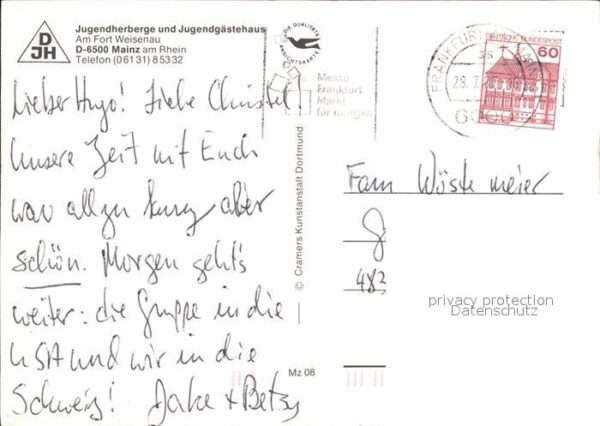 D
JH
Jugendherberge und Jugendgästehaus
Am Fort Weisenau
D-6500 Mainz am Rhein
Telefon (06131) 85332
DIE QUALITÄTS
ANSICHTSKARTE
Messe
Frankfurt
Markt
für morgen
FRANKFURT
28.7.
6000
DEUTSCHE BUNDESPOST
60
Lieber Hugo! Liebe Christel!
Unsere Zeit mit Euch
war allzu kurz aber
schön. Morgen geht's
weiter: die Gruppe in die
USA und wir in die
Schweiz! Jake + Betsy
© Cramers Kunstanstalt Dortmund
Mz 08
Fam Wöstemeier
483
privacy protection
Datenschutz